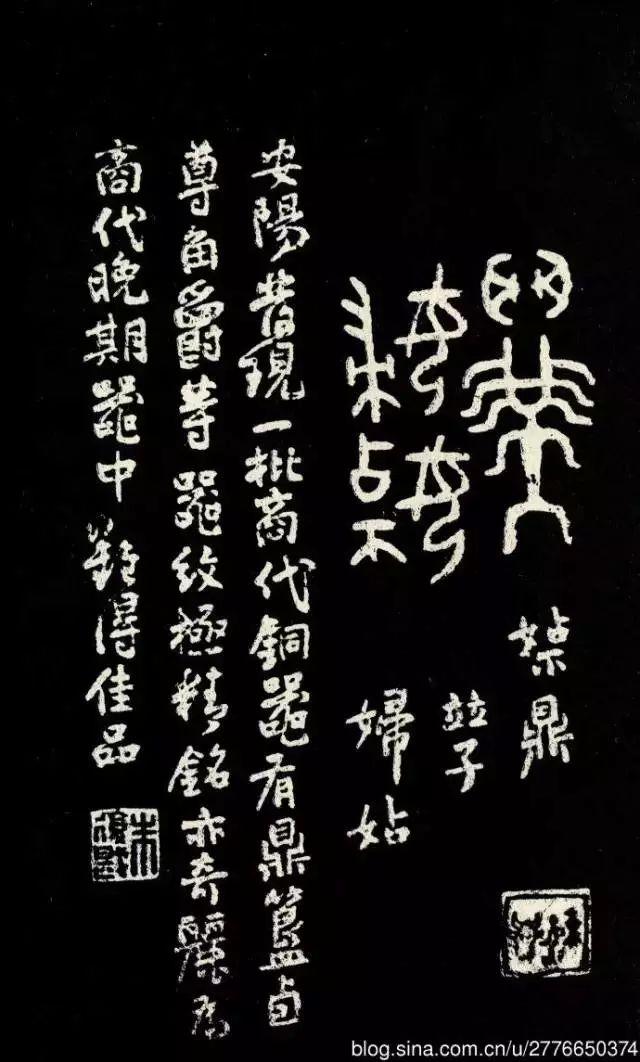 鼎
竝子
婦姑
安陽昔現一批商代銅器有鼎簋卣
尊角爵等器紋極精銘亦奇麗為
商代晚期器中難得佳品
朱復戡
blog.sina.com.cn/u/2776650374